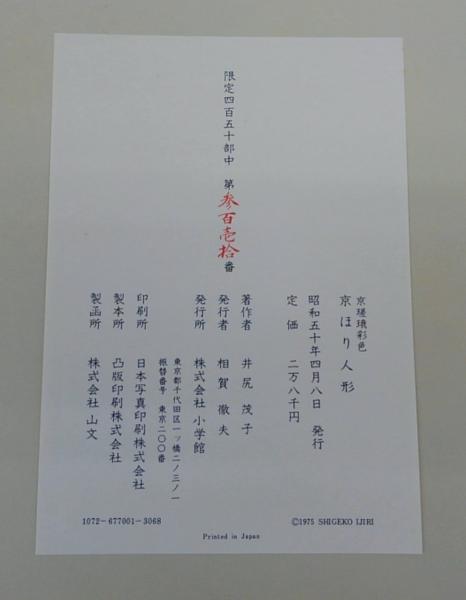 限定四百五十部中 第参百壱拾番
京瑳璃彩色
京ほり人形
昭和五十年四月八日 発行
定価 二万八千円
著作者 井尻茂子
発行者 相賀徹夫
発行所 株式会社小学館
東京都千代田区一ッ橋二ノ三ノ一
振替番号 東京二〇〇番
印刷所 日本写真印刷株式会社
製本所 凸版印刷株式会社
製函所 株式会社山文
1072-677001-3068
©1975 SHIGEKO IJIRI
Printed in Japan